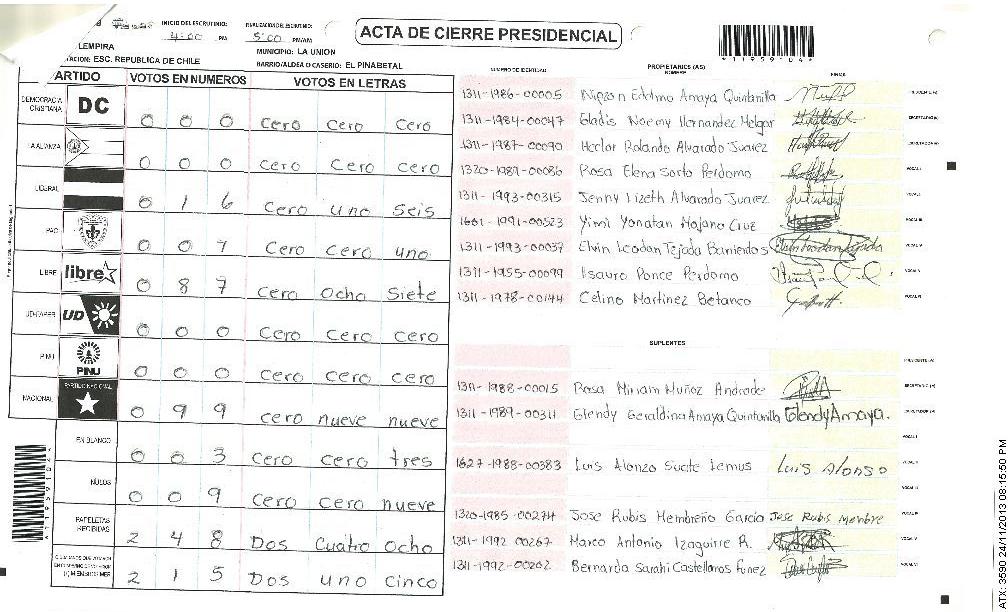 INICIO DEL ESCRUTINIO: 4:00 PM
FINALIZACION DEL ESCRUTINIO: 5:00 PM/AM
ACTA DE CIERRE PRESIDENCIAL
*11959104*
LEMPIRA
MUNICIPIO: LA UNION
ESC. REPUBLICA DE CHILE
BARRIO/ALDEA O CASERIO: EL PINABETAL
PARTIDO VOTOS EN NUMEROS VOTOS EN LETRAS
DEMOCRACIA CRISTIANA DC 0 0 0 cero cero cero
LA ALIANZA 0 0 0 cero cero cero
LIBERAL 0 1 6 cero uno seis
PAC 0 0 7 cero cero uno
LIBRE libre 0 8 7 cero ocho siete
UD-FAPER UD 0 0 0 cero cero cero
PINU PINU 0 0 0 cero cero cero
NACIONAL PARTIDO NACIONAL 0 9 9 cero nueve nueve
EN BLANCO 0 0 3 cero cero tres
NULOS 0 0 9 cero cero nueve
PAPELETAS RECIBIDAS 2 4 8 Dos cuatro ocho
2 1 5 Dos uno cinco
NUMERO DE IDENTIDAD PROPIETARIOS (AS) NOMBRE FIRMA
1311-1986-00005 Edilmo Amaya Quintanilla
1311-1984-00047 Gladis Noemy Hernandez Melgar
1311-1987-00090 Hector Rolando Alvarado Juarez
1320-1989-00086 Rosa Elena Sorto Perdomo
1311-1993-00315 Jenny Lizeth Alvarado Juarez
1601-1991-00523 Yimi Yonatan Majano Cruz
1311-1993-00037 Elvin Leodan Tejada Barrientos
1311-1955-00099 Isauro Ponce Perdomo
1311-1978-00144 Celino Martinez Betanco
SUPLENTES
1311-1988-00015 Rosa Miriam Muñoz Andrade
1311-1989-00311 Glendy Geraldina Amaya Quintanilla Glendy Amaya.
1627-1988-00383 Luis Alonzo Lemus Luis Alonso
1320-1985-00274 Jose Rubis Membreño Garcia Jose Rubis Membre
1311-1992-00267 Marco Antonio Izaguirre R.
1311-1992-00202 Bernarda Sarahi Castellanos Funez
*11959104*
ATX: 3590 24/11/2013 08:15:50 PM